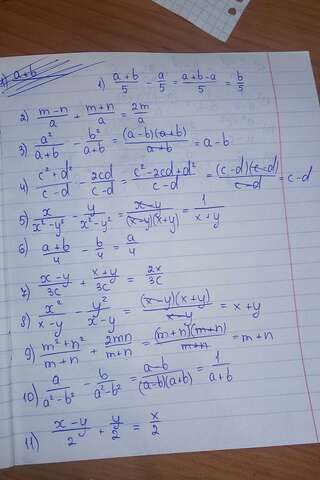 a+b
1) (a+b)/5 - a/5 = (a+b-a)/5 = b/5
2) (m-n)/a + (m+n)/a = 2m/a
3) a²/(a+b) - b²/(a+b) = (a-b)(a+b)/(a+b) = a-b
4) (c²+d²)/(c-d) - 2cd/(c-d) = (c²-2cd+d²)/(c-d) = (c-d)(c-d)/(c-d) = c-d
5) x/(x²-y²) - y/(x²-y²) = (x-y)/((x-y)(x+y)) = 1/(x+y)
6) (a+b)/4 - b/4 = a/4
7) (x-y)/3c + (x+y)/3c = 2x/3c
8) x²/(x-y) - y²/(x-y) = (x-y)(x+y)/(x-y) = x+y
9) (m²+n²)/(m+n) + 2mn/(m+n) = (m+n)(m+n)/(m+n) = m+n
10) a/(a²-b²) - b/(a²-b²) = (a-b)/((a-b)(a+b)) = 1/(a+b)
11) (x-y)/2 + y/2 = x/2